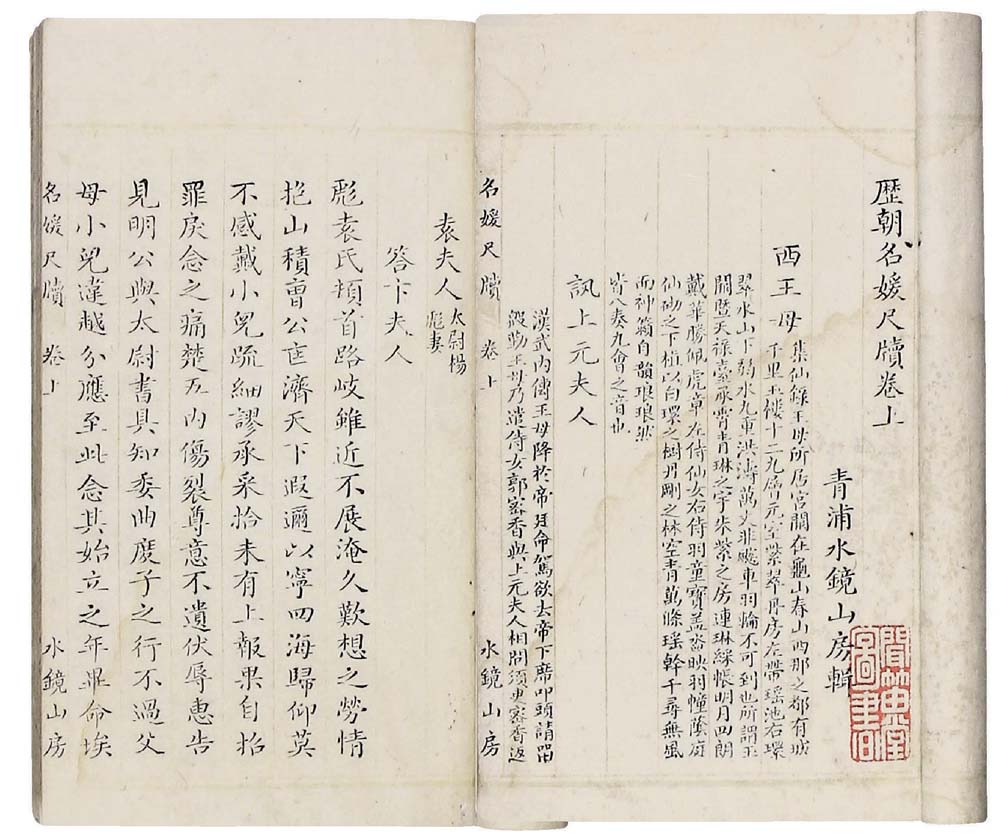 歷朝名媛尺牘卷上
青浦水鏡山房輯
西王母
集仙錄王母所居宮闕在龜山春山西那之都有城
千里玉樓十二九層元室紫翠丹房左帶瑶池右環
翠水山下弱水九重洪濤萬丈非飈車羽輪不可到也所謂玉
闕塈天祿臺承霄青琳之宇朱紫之房連琳綵帳明月四朗
戴華勝佩虎章左侍仙女右侍羽童寶盖沓映羽幢蔭庭
仙砌之下植以白環之樹丹剛之林空青萬條瑶幹千尋無風
而神籟自韻琅琅然
皆八奏九會之音也
訊上元夫人
漢武內傳王母降於帝廷命駕欲去帝下席叩頭請留
殷勤王母乃遣侍女郭密香與上元夫人相問須臾密香返
名媛尺牘 卷上 水鏡山房
袁夫人
太尉楊
彪妻
答卞夫人
彪袁氏頓首路岐雖近不展淹久歎想之勞情
抱山積曹公匡濟天下遐邇以寧四海歸仰莫
不感戴小兒疏細謬承采拾未有上報果自招
罪戾念之痛楚五內傷裂尊意不遺伏辱惠告
見明公與太尉書具知委曲度子之行不過父
母小兒違越分應至此念其始立之年畢命埃
名媛尺牘 卷上 水鏡山房